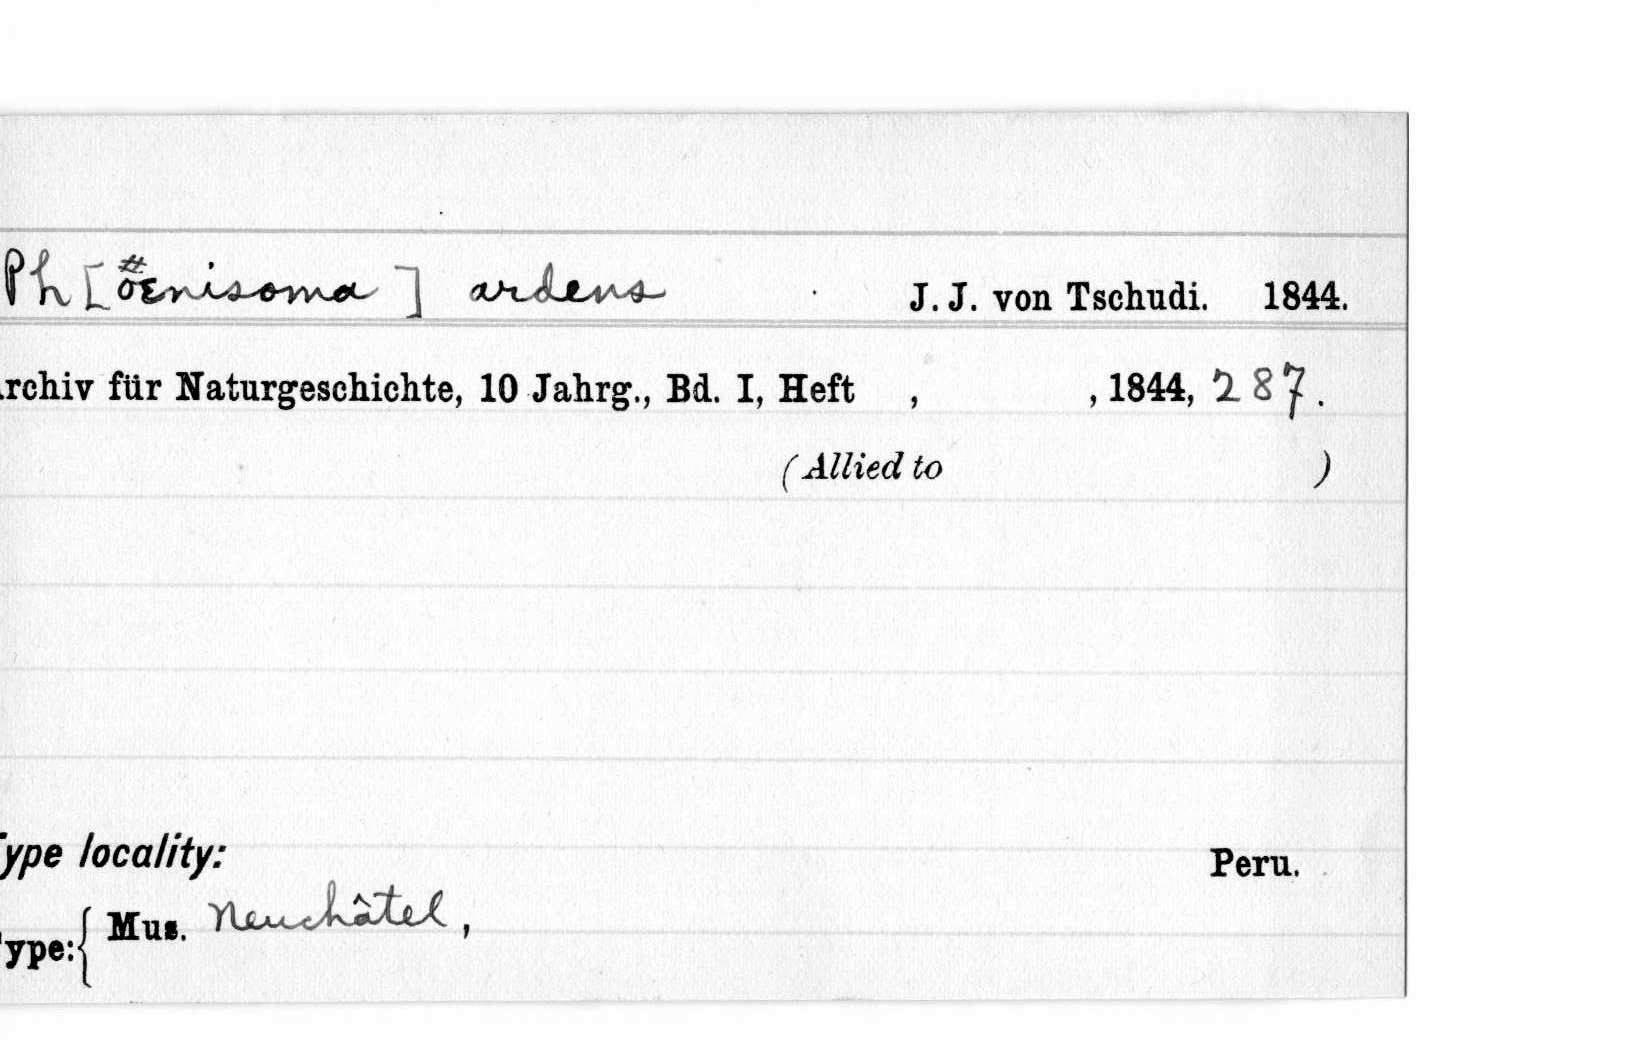 Ph[œnisoma] ardens J. J. von Tschudi. 1844.
rchiv für Naturgeschichte, 10 Jahrg., Bd. I, Heft , , 1844, 287.
(Allied to )
Type locality: Peru.
ype: { Mus. Neuchâtel,